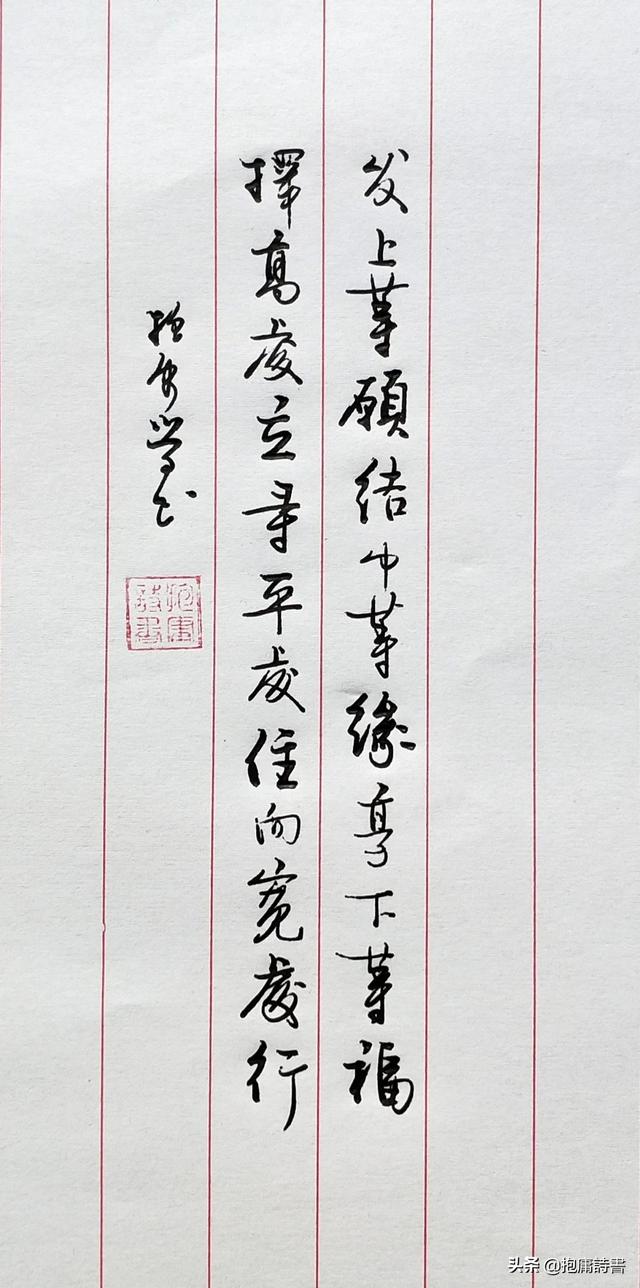 发上等願结中等緣享下等福
擇高處立寻平處住向宽處行
抱庸學书
抱庸詩書
头条 @抱庸詩書